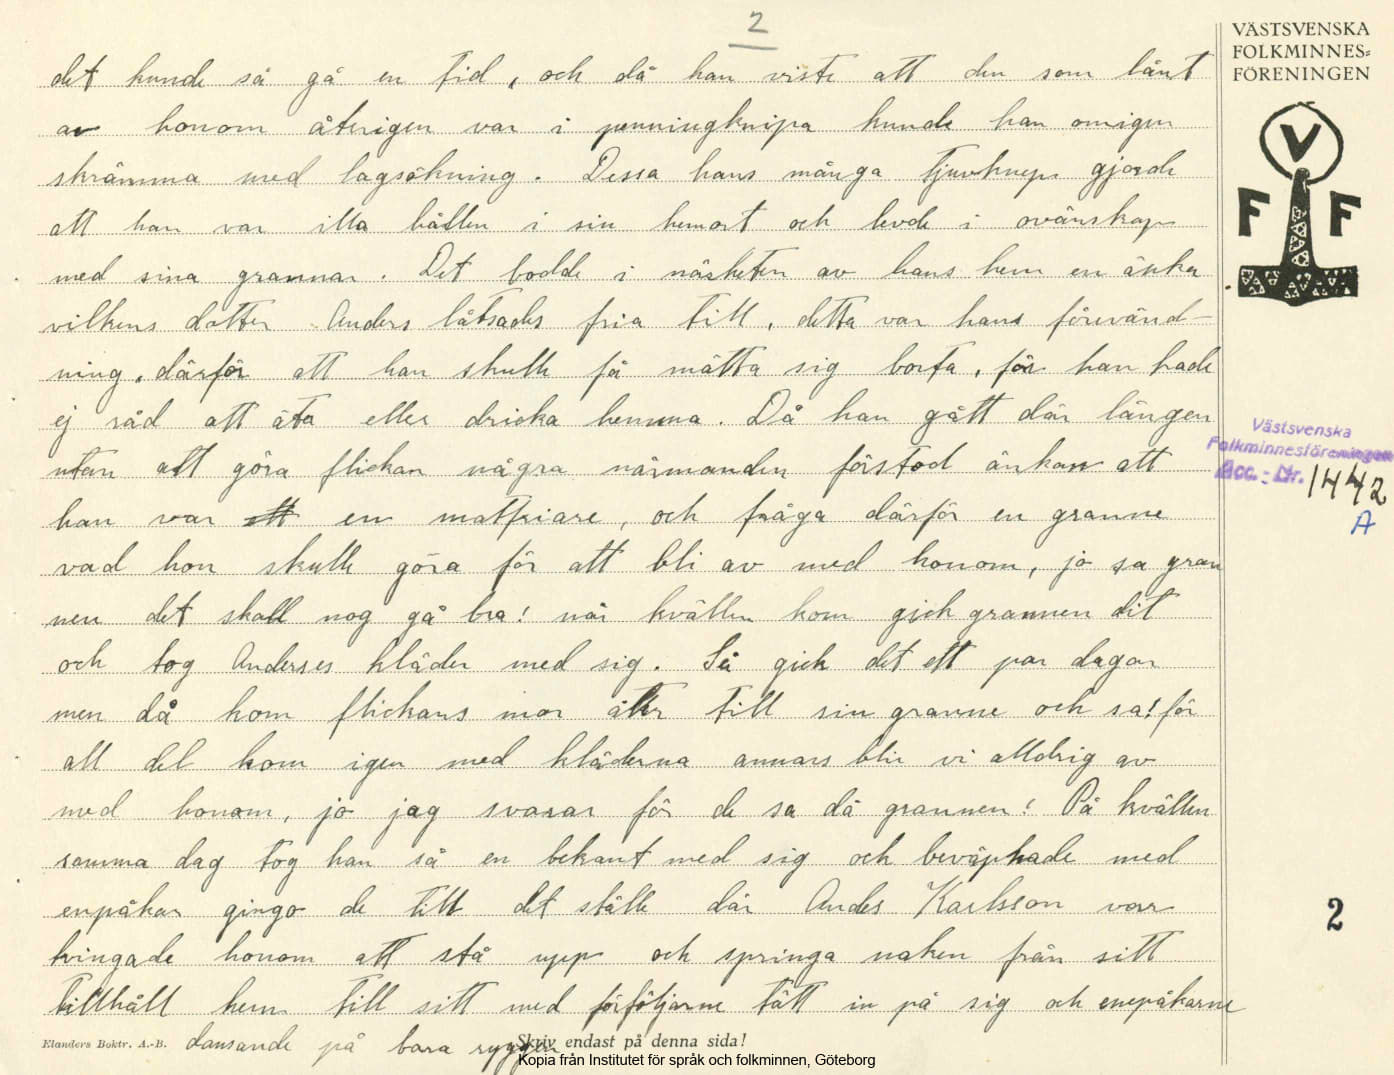 2
VÄSTSVENSKA
FOLKMINNES-
FÖRENINGEN
V
F F
det kunde så gå en tid, och då han viste att den som lånt
av honom återigen var i penningknipa kunde han omigen
skrämma med lagsökning. Dessa hans många tjuvknep gjorde
att han var illa hållen i sin hemort och levde i ovänskap
med sina grannar. Det bodde i närheten av hans hem en änka
vilkens dotter Anders låtsades fria till, detta var hans förevänd-
ning, därför att han skulle få mätta sig borta, för han hade
ej råd att äta eller dricka hemma. Då han gått där längen
utan att göra flickan några närmanden förstod änkan att
han var en matfriare, och fråga därför en granne
vad hon skulle göra för att bli av med honom, jo sa gran
nen det skall nog gå bra! när kvällen kom gick grannen dit
och tog Anderses kläder med sig. Så gick det ett par dagar
men då kom flickans mor åter till sin granne och sa! för
all del kom igen med kläderna annars blir vi alldrig av
med honom, jo jag svarar för de sa då grannen! På kvällen
samma dag tog han så en bekant med sig och beväpnade med
enpåkar gingo de till det ställe där Andes Karlsson var
tvingade honom att stå upp och springa naken från sitt
tillhåll hem till sitt med förföljarne tätt in på sig och enepåkarne
dansande på bara ryggen
Västsvenska
Folkminnesföreningen
Acc.-Nr. 1442
A
2
Elanders Boktr. A.-B.
Skriv endast på denna sida!
Kopia från Institutet för språk och folkminnen, Göteborg